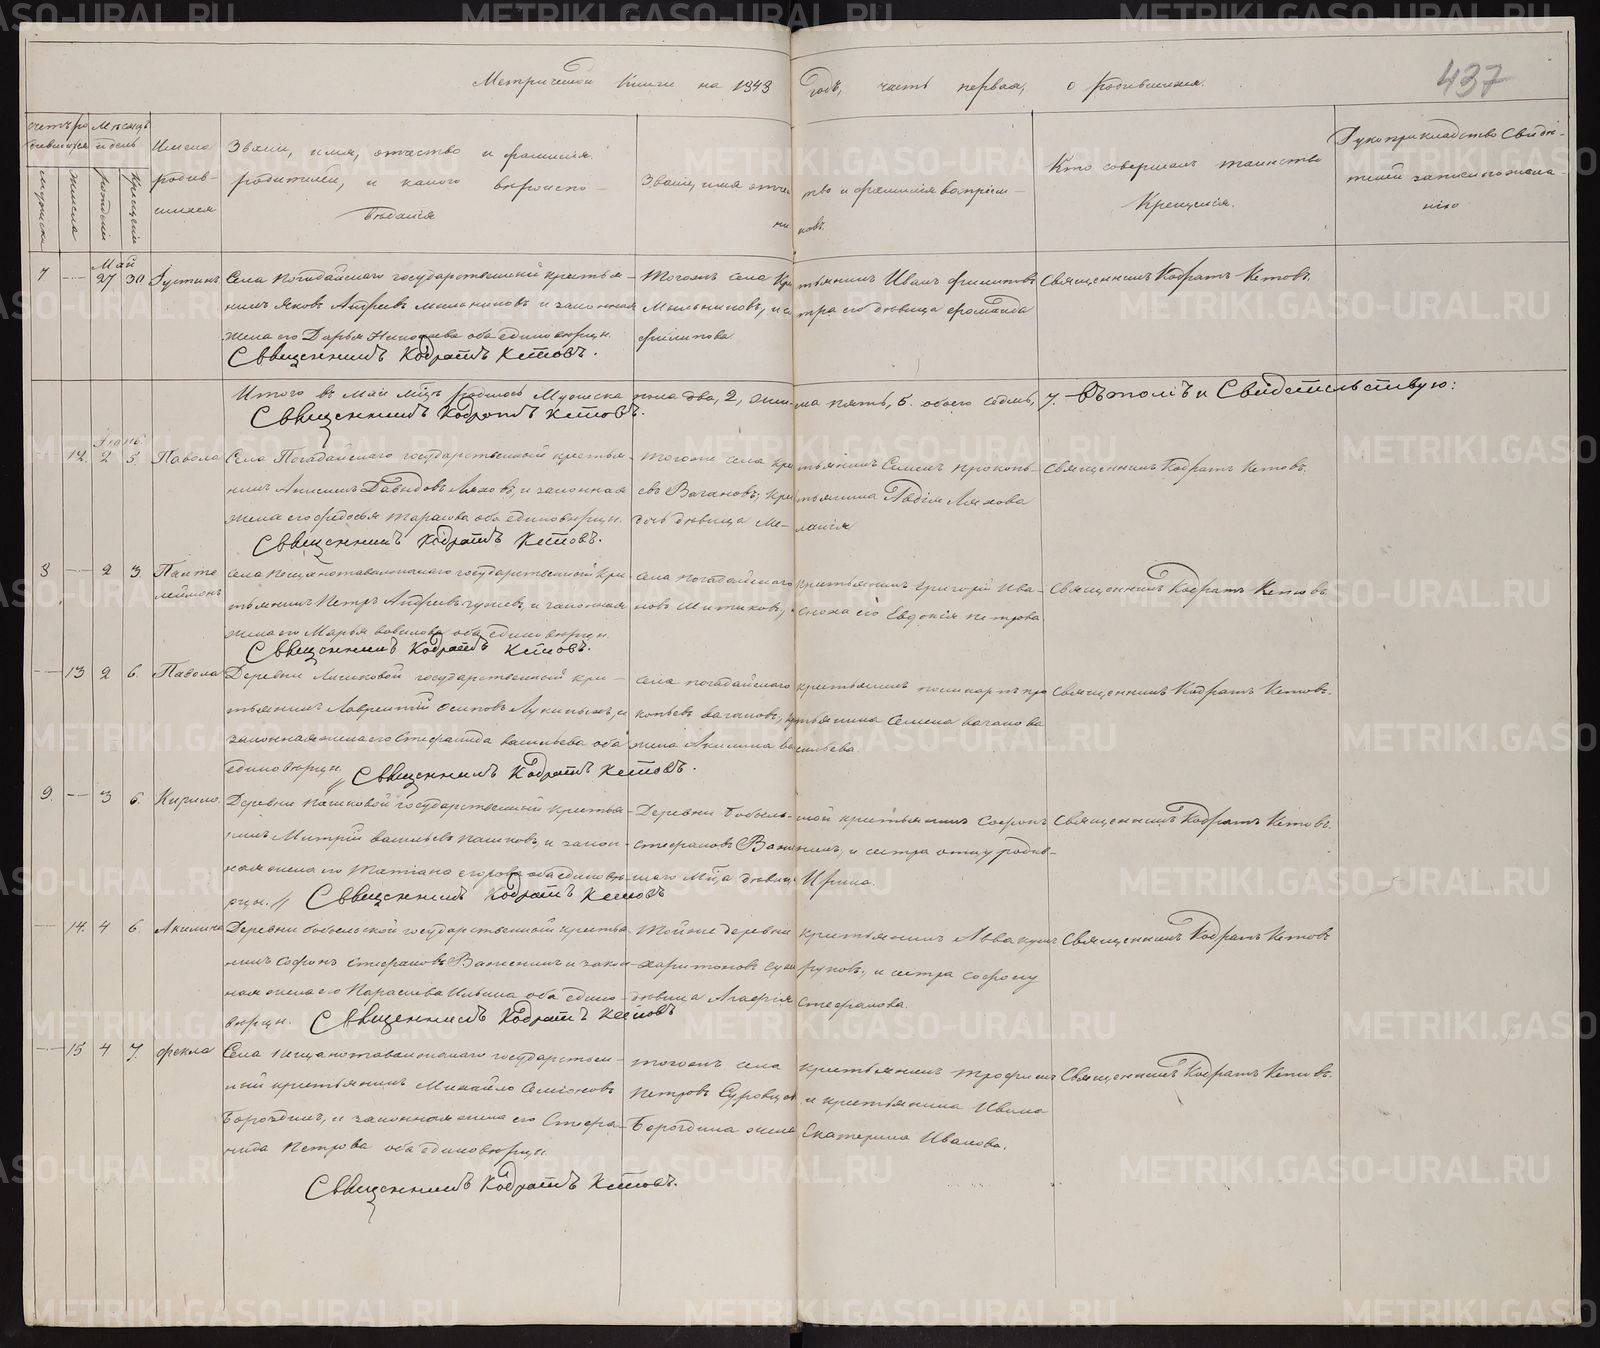 437
Метрической книги на 1843 годъ, часть первая, о родившихся.
Счетъ родившихся
Мѣсяцъ и день
Имена родив-
шихся
Званіе, имя, отчество и фамилія
родителей, и какого вѣроиспо-
вѣданія
Званіе, имя отчество и фамилія воспріем-
никовъ
Кто совершалъ таинство
Крещенія.
Рукоприкладство свидѣ-
телей записи по жела-
нію
мужеска
женска
рожденія
крещенія
Май
7 27 30 Іустинъ
Села Погадайскаго государственный крестья-
нинъ Яковъ Андреевъ Мыльниковъ и законная
жена его Дарья оба единовѣрцы.
Священникъ Кодратъ Кетовъ.
Тогожъ села крестьянинъ Иванъ Филиповъ
Мыльниковъ, и сестра его дѣвица
Филипова
Священникъ Кодратъ Кетовъ.
Итого въ май мцѣ родилось мужеска пола два, 2, женска пять, 5. обоего седмь, 7. Въ томъ и Свидѣтельствую:
Священникъ Кодратъ Кетовъ.
Іюнь.
12. 2 5. Павола
Села Погадайскаго государственный крестья-
нинъ Давыдовъ Ляховъ, и законная
жена его Федосья Тарасова оба единовѣрцы.
Священникъ Кодратъ Кетовъ.
Тогоже села крестьянинъ Семенъ Прокопь-
евъ Вагановъ, крестьянина Ляхова
дочь дѣвица Ме-
ланія
Священникъ Кодратъ Кетовъ.
8 2 3. Панте
леймонъ
Села государственный кре-
стьянинъ Петръ Андреевъ и законная
жена его Марья Вавилова оба единовѣрцы.
Священникъ Кодратъ Кетовъ.
Села Погадайскаго крестьянинъ Григорій Ива-
новъ и сноха его Евдокія Петрова
Священникъ Кодратъ Кетовъ
13 2 6. Павола
Деревни государственный кре-
стьянинъ Лаврентій Осиповъ и
законная жена его Стефанида Васильева оба
единовѣрцы. Священникъ Кодратъ Кетовъ.
Села Погадайскаго крестьянинъ про
копьевъ Вагановъ, крестьянина Семена Ваганова
жена Акилина Васильева.
Священникъ Кодратъ Кетовъ.
9. 3 6. Кирило.
Деревни Пашковой государственный крестья-
нинъ Митрій Васильевъ Пашковъ, и закон-
ная жена его Татіана Егорова оба единовѣ-
рцы. Священникъ Кодратъ Кетовъ
Деревни крестьянинъ Софонъ
Стефановъ и сестра отцу родив-
шаго мца дѣвица Ирина.
Священникъ Кодратъ Кетовъ.
14. 4 6. Акилина
Деревни государственный крестья-
нинъ Софонъ Стефановъ и закон-
ная жена его Парасчева Ильина оба едино-
вѣрцы. Священникъ Кодратъ Кетовъ
Тойже деревни крестьянинъ Аввакумъ
Харитоновъ и сестра Софону
дѣвица Агафія Стефанова.
Священникъ Кодратъ Кетовъ
15 4 7. Фекла
Села государствен-
ный крестьянинъ Михайло Семіоновъ
Бороздинъ, и законная жена его Стефа-
нида Петрова оба единовѣрцы.
Священникъ Кодратъ Кетовъ.
Тогожъ села крестьянинъ Трофимъ
Петровъ Суровцевъ и крестьянина Ивана
Бороздина жена Екатерина Иванова.
Священникъ Кодратъ Кетовъ.
METRIKI.GASO-URAL.RU